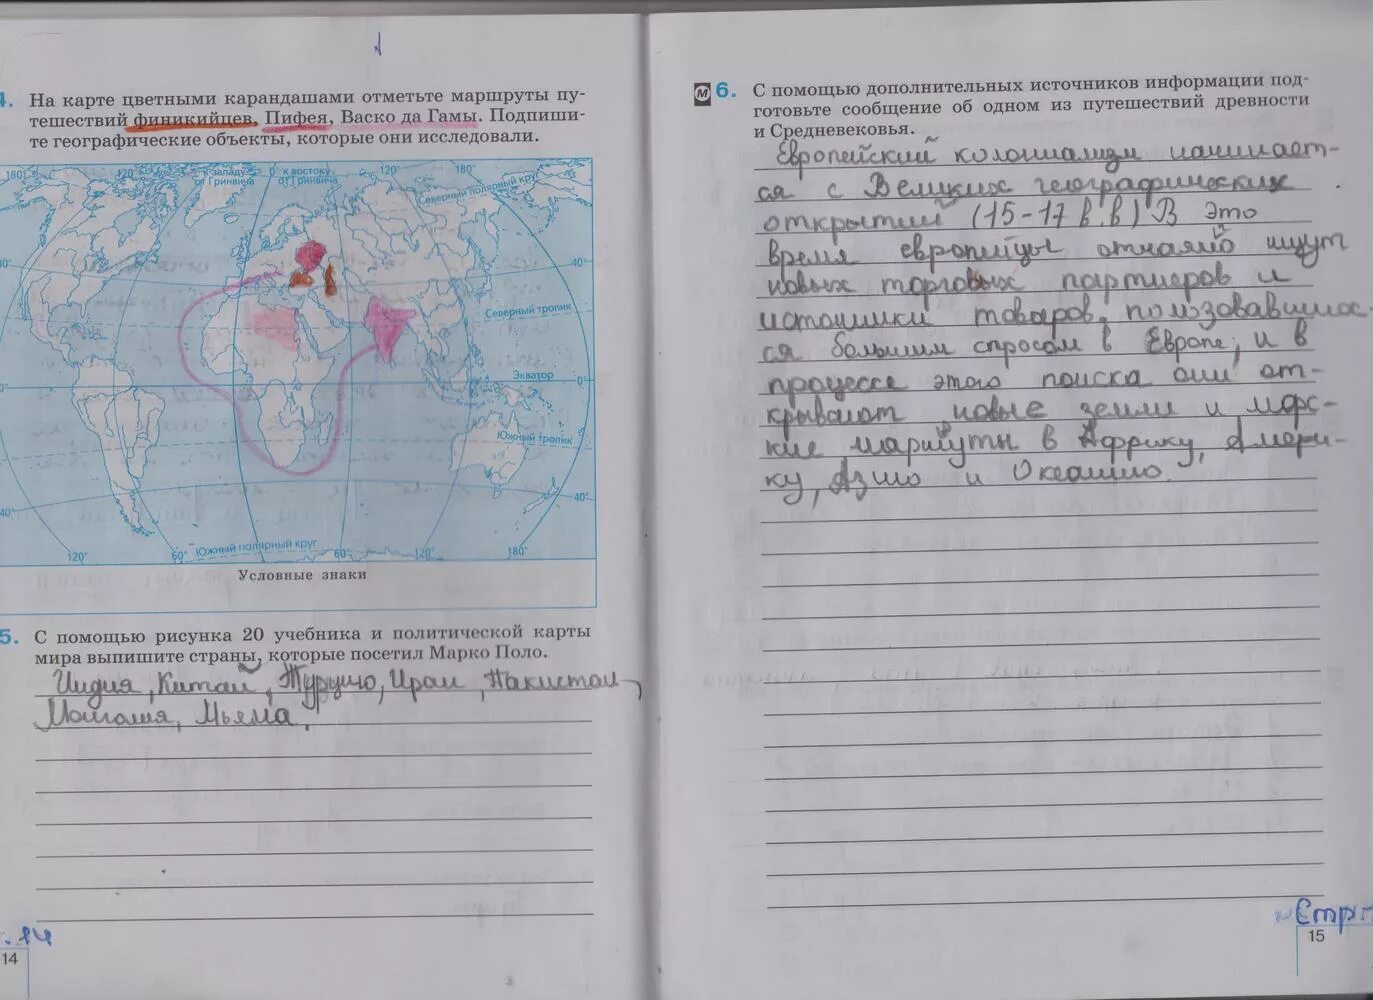 4. На карте цветными карандашами отметьте маршруты пу-
тешествий финикийцев, Пифея, Васко да Гамы. Подпиши-
те географические объекты, которые они исследовали.
180°
120°
к западу
от Гринвича
0° к востоку
от Гринвича
120°
180°
Северный полярный круг
40°
40°
Северный тропик
Экватор
0°
0°
Южный тропик
40°
40°
Южный полярный круг
120°
60°
60°
120°
180°
Условные знаки
5. С помощью рисунка 20 учебника и политической карты
мира выпишите страны, которые посетил Марко Поло.
Индия, Китай, Турцию, Иран, Пакистан,
Монголия, Мьяма.
14
14
М 6. С помощью дополнительных источников информации под-
готовьте сообщение об одном из путешествий древности
и Средневековья.
Европейский колониализм начинает-
ся с Великих географических
открытий (15-17 в.в) В это
время европейцы отчаянно ищут
новых торговых партнеров и
источники товаров, пользовавшихс-
ся большим спросом в Европе, и в
процессе этого поиска они от-
крывают новые земли и морс-
кие маршруты в Африку, Амери-
ку, Азию и Океанию.
Стр
15